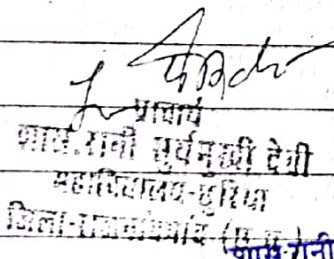 प्राचार्य
शास. रानी सूर्यमुखी देवी
महाविद्यालय-छुरिया
जिला-राजनांदगांव (छ.ग.)
शास. रानी